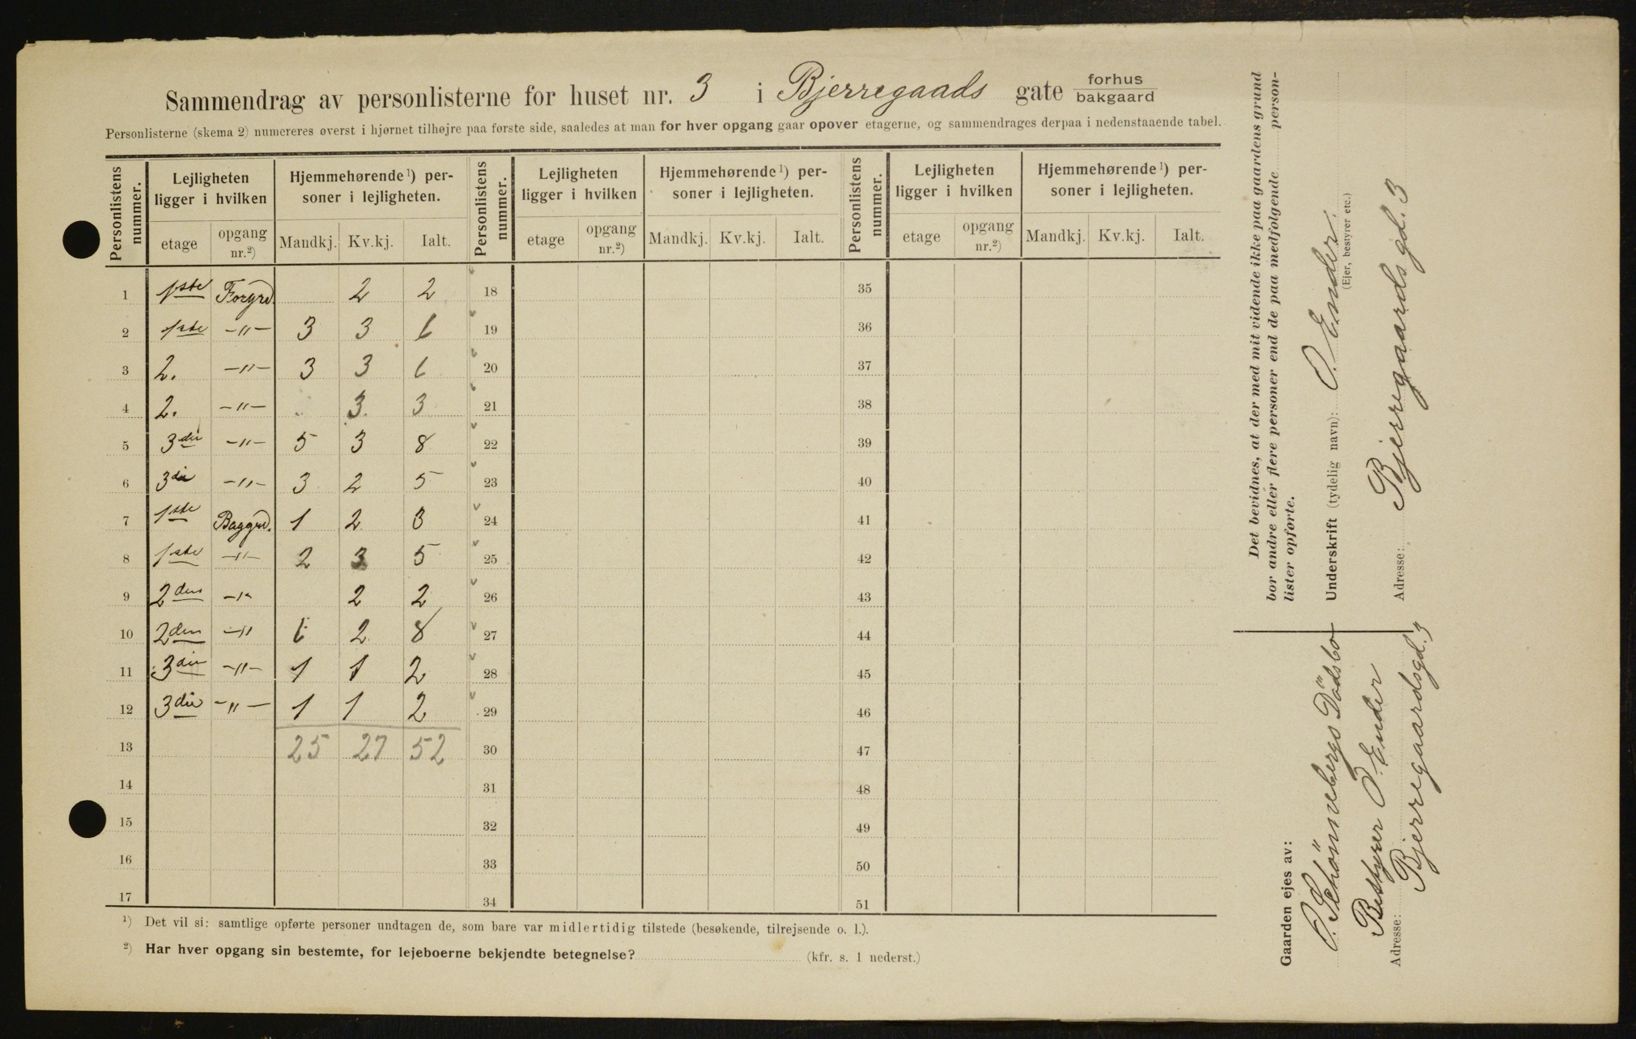 Sammendrag av personlisterne for huset nr. 3 i Bjerregaads gate forhus bakgaard
Personlisterne (skema 2) numereres øverst i hjørnet tilhøjre paa første side, saaledes at man for hver opgang gaar opover etagerne, og sammendrages derpaa i nedenstaaende tabel.
Personlistens nummer. Lejligheten ligger i hvilken Hjemmehørende¹) personer i lejligheten. Personlistens nummer. Lejligheten ligger i hvilken Hjemmehørende¹) personer i lejligheten. Personlistens nummer. Lejligheten ligger i hvilken Hjemmehørende¹) personer i lejligheten.
etage opgang nr.²) Mandkj. Kv.kj. Ialt. etage opgang nr.²) Mandkj. Kv.kj. Ialt. etage opgang nr.²) Mandkj. Kv.kj. Ialt.
1 1ste Forgrd 2 2 18 35
2 1ste –"– 3 3 6 19 36
3 2. –"– 3 3 6 20 37
4 2. –"– 3 3 21 38
5 3die –"– 5 3 8 22 39
6 3die –"– 3 2 5 23 40
7 1ste Baggrd. 1 2 3 24 41
8 1ste –"– 2 3 5 25 42
9 2den –"– 2 2 26 43
10 2den –"– 6 2 8 27 44
11 3die –"– 1 1 2 28 45
12 3die –"– 1 1 2 29 46
13 25 27 52 30 47
14 31 48
15 32 49
16 33 50
17 34 51
¹) Det vil si: samtlige opførte personer undtagen de, som bare var midlertidig tilstede (besøkende, tilrejsende o. l.).
²) Har hver opgang sin bestemte, for lejeboerne bekjendte betegnelse? (kfr. s. 1 nederst.)
Det bevidnes, at der med mit vidende ikke paa gaardens grund
bor andre eller flere personer end de paa medfølgende personlister opførte.
Underskrift (tydelig navn): O. Ender.
(Ejer, bestyrer etc.)
Adresse: Bjerregaardsgd. 3
Gaarden ejes av:
O. Schönnebergs Dödsbo
Bestyrer O. Ender
Adresse: Bjerregaardsgd. 3